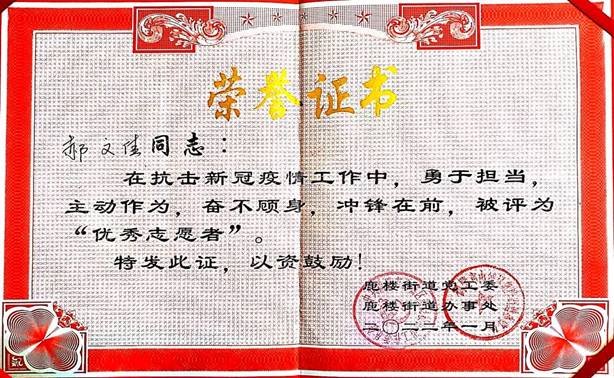 荣誉证书
郝文佳同志：
在抗击新冠疫情工作中，勇于担当，
主动作为，奋不顾身，冲锋在前，被评为
“优秀志愿者”。
特发此证，以资鼓励！
鹿楼街道党工委
鹿楼街道办事处
二〇二二年一月